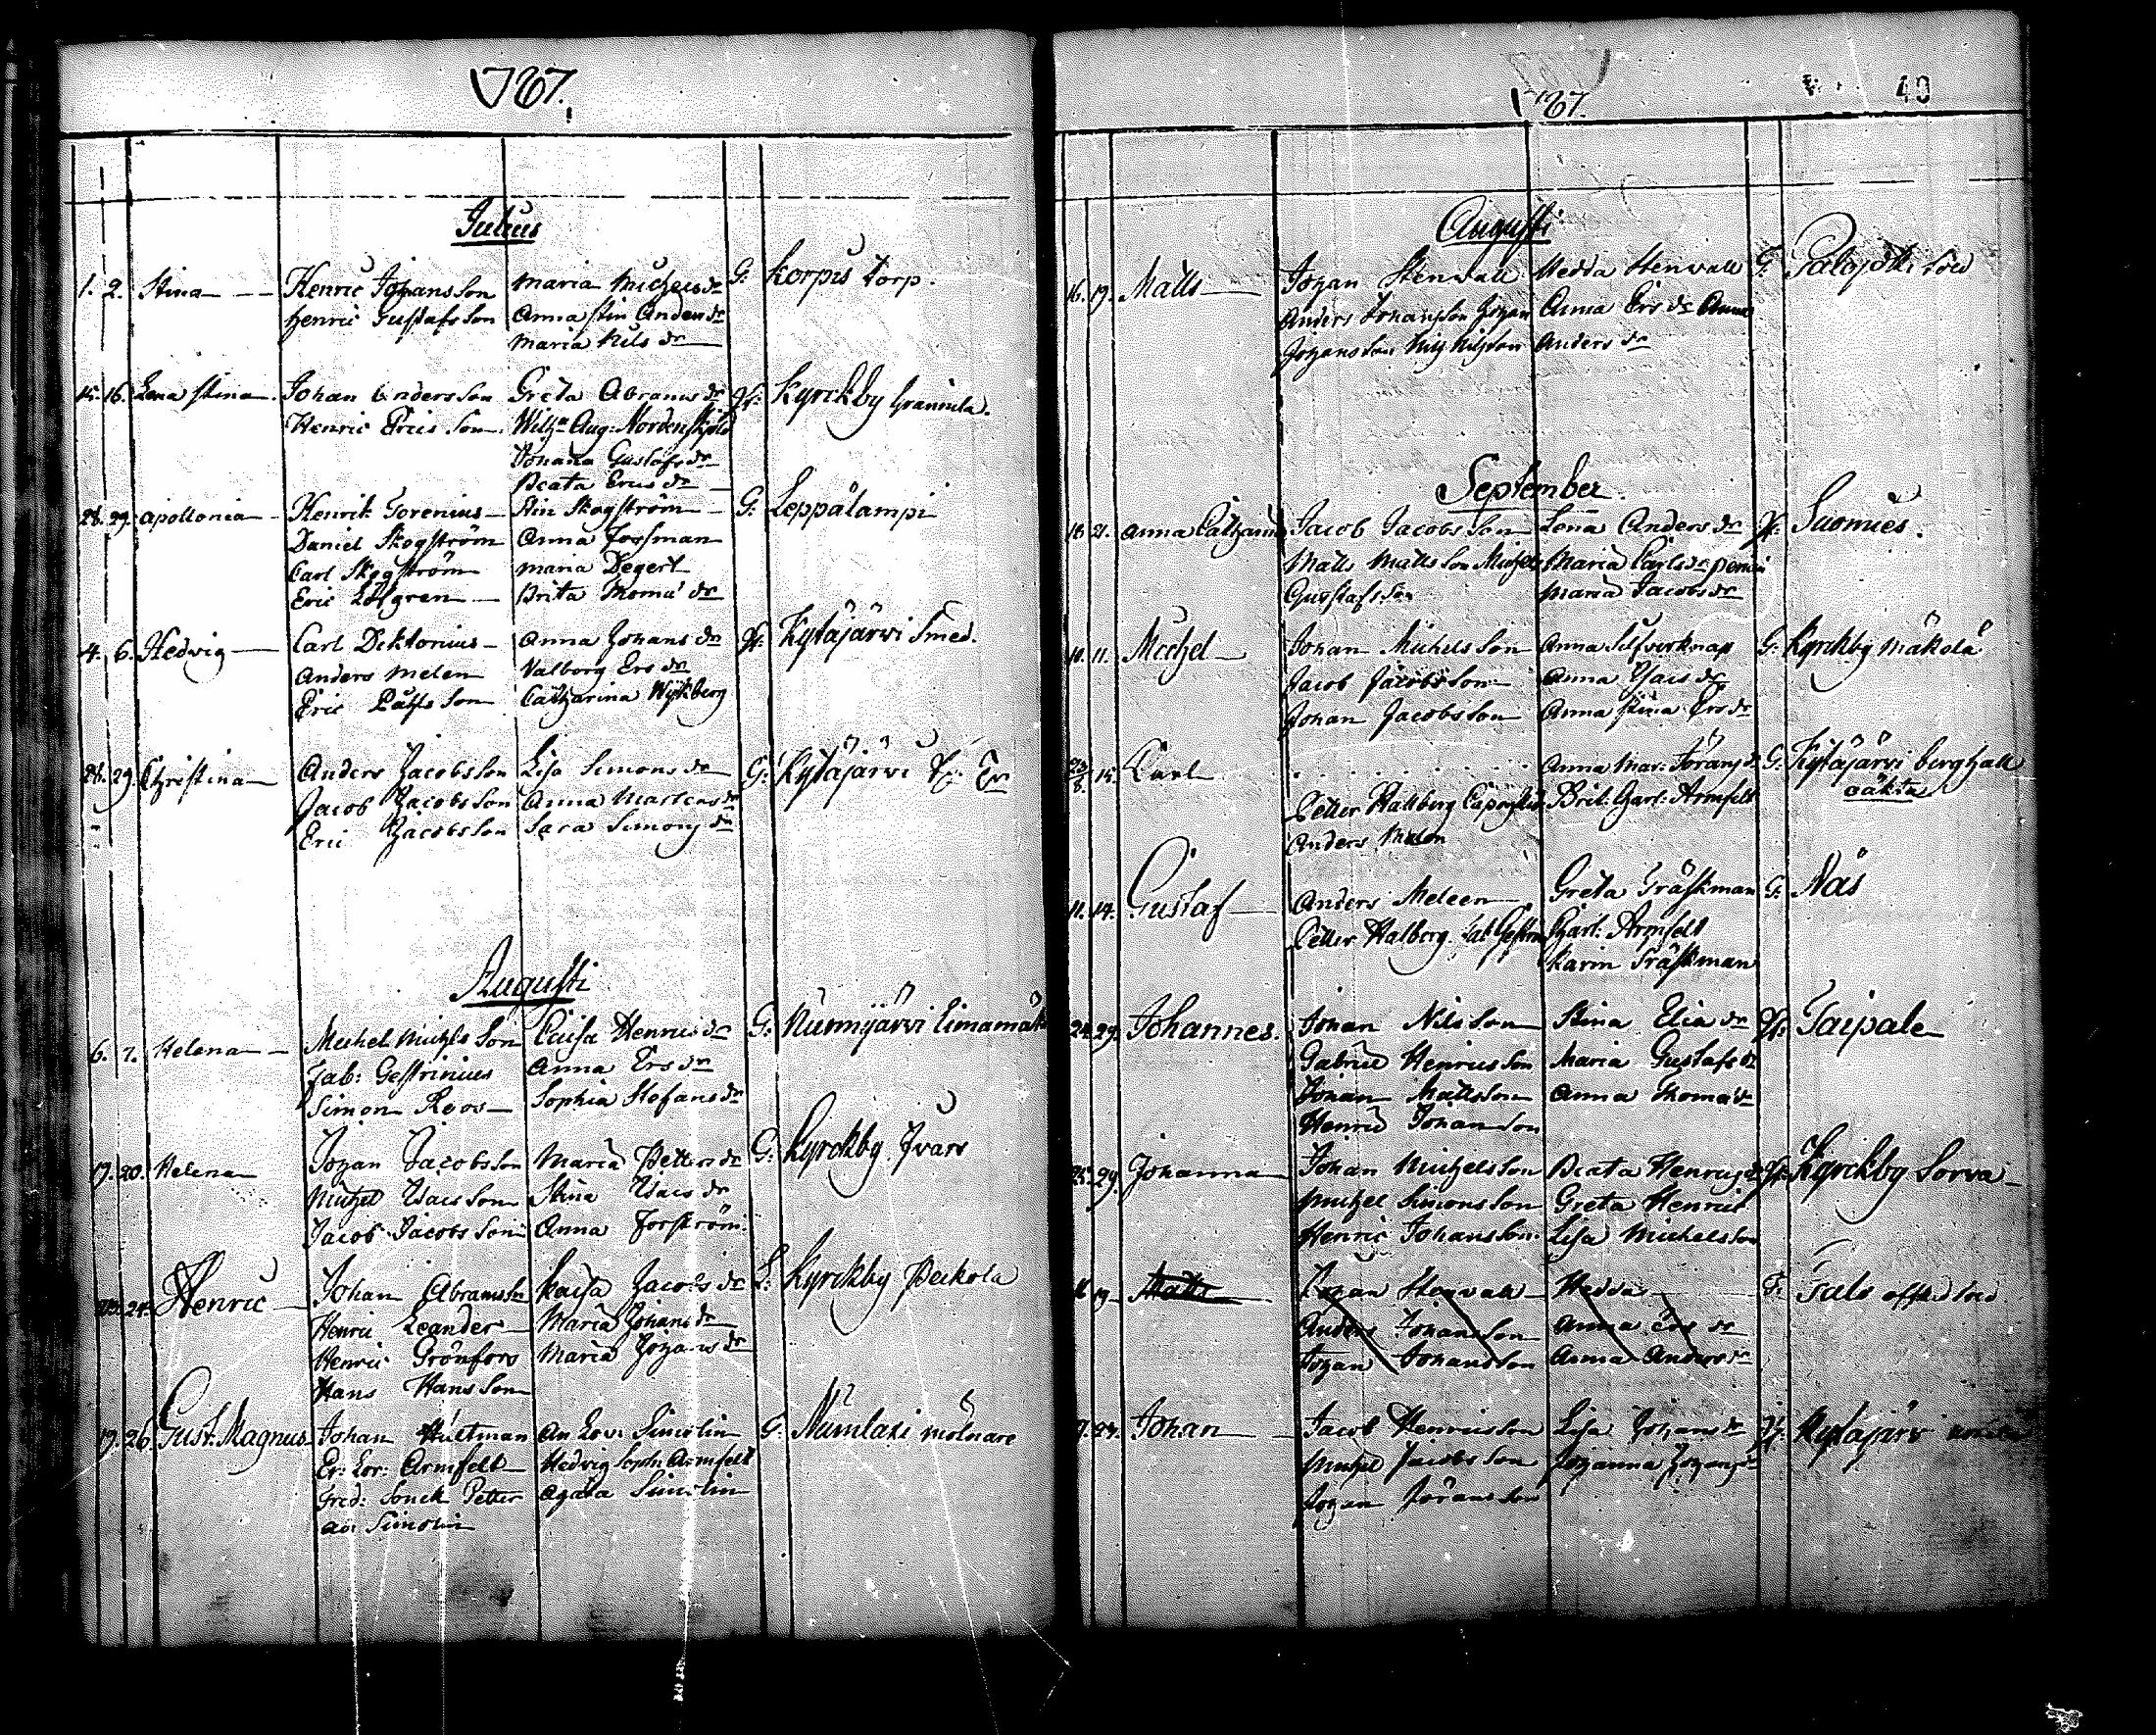 1767.
Julius
1. 2. Stina Henric Johansson Maria Michelsdr G: Korpis Torp.
Henric Gustafsson Anna Stin Andersdr
Maria Nilsdr
15. 16. Lena Stina Johan Andersson Greta Abramsdr Kyrckby Grannila.
Henric Ericsson Aug: Nordenskjöld
Johana Gustafsdr
Beata Ericsdr
28. 29. Apollonia Henrik Forenius Stin Skogström G: Leppälampi
Daniel Skogström Anna Forsman
Carl Skogström Maria Degert
Eric Löfgren Brita Thomædr
4. 6. Hedvig Carl Diktonius Anna Johansdr Kytäjärvi Smed.
Anders Melen Valborg Ersdr
Eric Catharina Wykberg
28. 29. Christina Anders Jacobsson Lisa Simonsdr G: Kytäjärvi
Jacob Jacobsson Anna Martensdr
Eric Jacobsson Sara Simonsdr
Augusti
6. 7. Helena Michel Michelsson Caisa Henricsdr G: Nurmijärvi
Fab: Gestrinius Anna Ersdr
Simon Roos Sophia Stefansdr
19. 20. Helena Johan Jacobsson Maria Pettersdr G: Kyrckby Ivars
Michel Isacsson Stina Isacsdr
Jacob Jacobsson Anna Forström
23. 24. Henric Johan Abramsson Kaisa Jacobsdr Kyrckby Peckola
Henric Leander Maria Johansdr
Henric Grönfors Maria Johansdr
Hans Hansson
19. 26. Gust. Magnus Johan Hultman An Lov: Simolin G: Numlaxi mölnare
Er: Lor: Armfelt Hedvig Soph: Armfelt
Fred: Sonck Petter Agata Simolin
Simolin
1767.
40
Augusti
16. 19. Matts Johan Stenwall Hedda Stenwall G: Sold
Anders Johansson Johan Anna Ersdr Anna
Johansson Nils Nilsson Andersdr
September
18 21. Anna Catharina Jacob Jacobsson Lena Andersdr Suomies.
Matts Mattsson Michel Maria Carlsdr
Gustafsson Maria Jacobsdr
10. 11. Michel Johan Michelsson Anna Silfverknap G: Kyrckby Mäkelä
Jacob Jacobsson Anna Isacsdr
Johan Jacobsson Anna Stina Ersdr
15. Carl Anna Mar: G: Kytäjärvi berghall
oäkta
Petter Hallberg Brit: Charl: Armfelt
Anders Melen
11. 14. Gustaf Anders Meleen Greta Träskman G: Näs
Petter Halberg Charl: Armfelt
Karin Träskman
24. 29. Johannes. Johan Nilsson Stina Eliædr Taipale
Gabriel Henricsson Maria Gustafsdr
Johan Mattsson Anna Thomædr
Henric Johansson
25. 29. Johanna Johan Michelsson Beata Henricsdr Kyrckby Sorva
Michel Simonsson Greta Henrics
Henric Johansson Lisa Michelsson
16 19 Matts Johan Stenwall Hedda
Anders Johansson Anna Ersdr
Johan Johansson Anna Andersdr
24. Johan Jacob Henricsson Lisa Johansdr Kytäjärv
Michel Jacobsson Johanna Johansdr
Johan Joransson